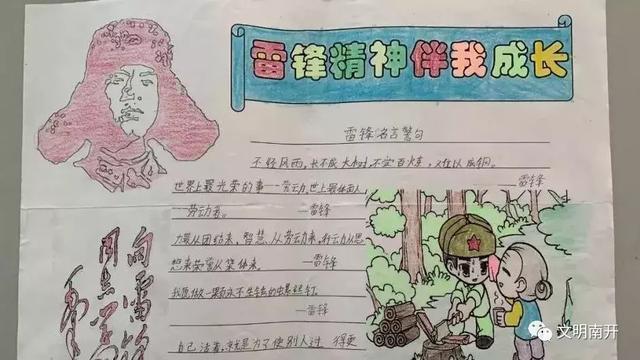 雷锋精神伴我成长
雷锋名言警句
不经风雨,长不成大树,不受百炼,难以成钢。
——雷锋
世界上最光荣的事——劳动,世上最体面人
——劳动者。 ——雷锋
力量从团结来,智慧从劳动来,行动从思
想来荣誉从集体来。 ——雷锋
我愿做一颗永不生锈的螺丝钉
——雷锋
自己活着,就是为了使别人过 得更
向雷锋
同志学
文明南开